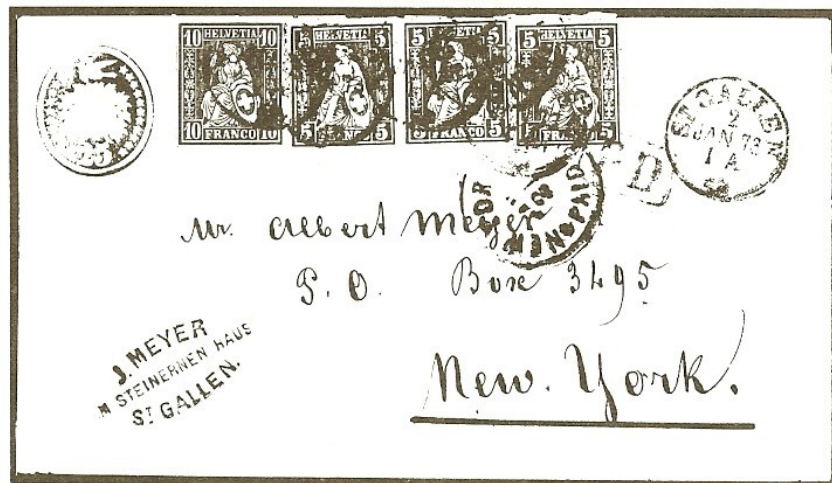 10 HELVETIA 10
10 FRANCO 10
5 HELVETIA 5
5 FRANCO 5
5 HELVETIA 5
5 FRANCO 5
5 HELVETIA 5
5 FRANCO 5
ST GALLEN
2
JAN 73
1 A
NEW YORK
PAID
Mr. Albert Meyer
P. O. Box 3495
New. York.
J. MEYER
STEINERNEN HAUS
ST GALLEN.